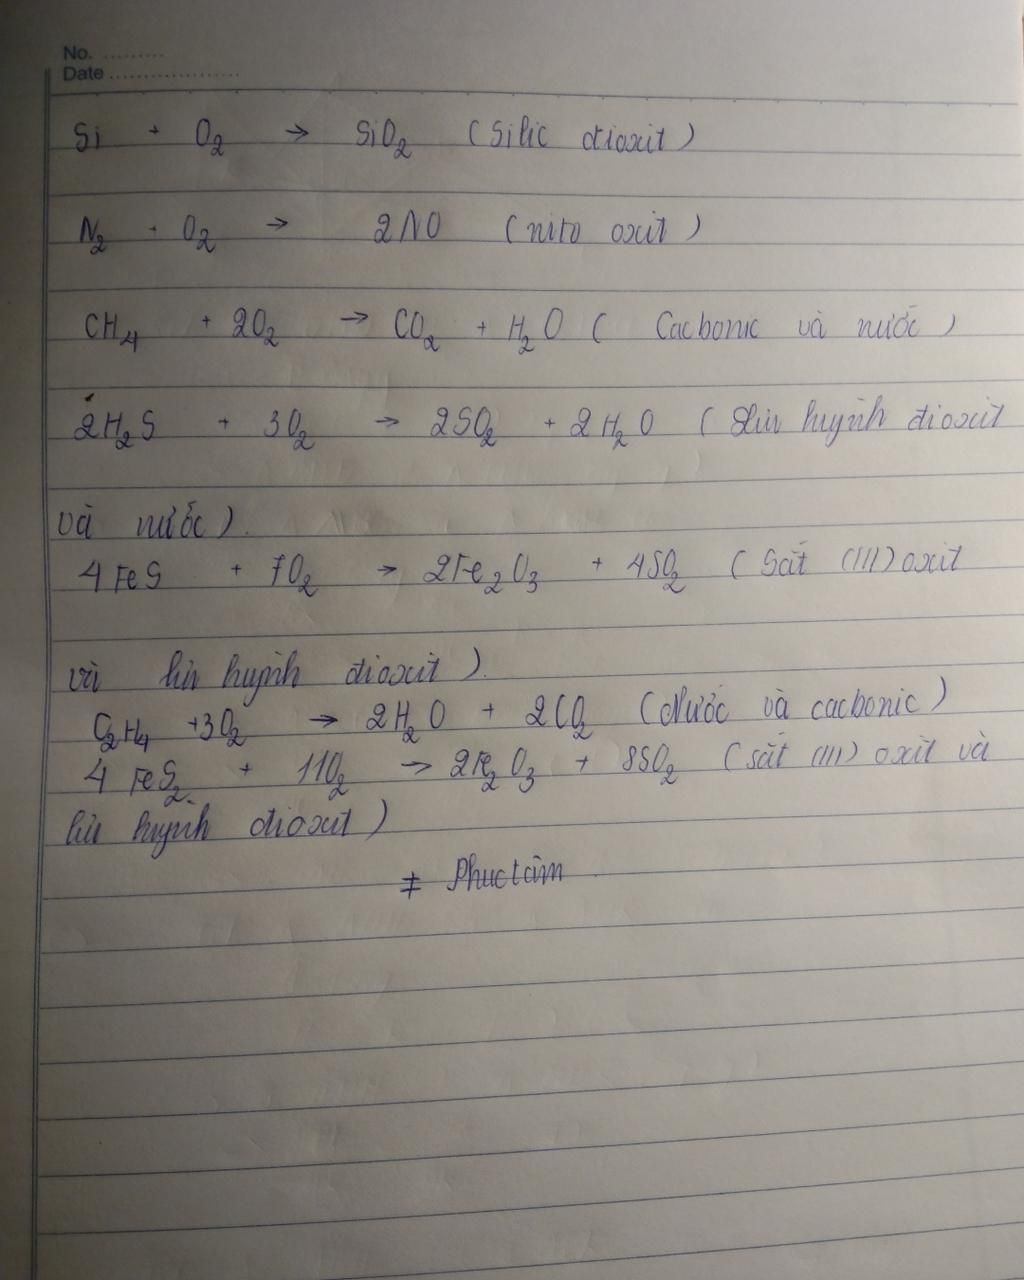 No. .........
Date ....................
Si + O₂ → SiO₂ (Silic đioxit)
N₂ + O₂ → 2NO (nito oxit)
CH₄ + 2O₂ → CO₂ + H₂O ( Cacbonic và nước )
2H₂S + 3O₂ → 2SO₂ + 2H₂O ( Lưu huỳnh đioxit
và nước ).
4FeS + 7O₂ → 2Fe₂O₃ + 4SO₂ ( Sắt (III) oxit
và lưu huỳnh đioxit ).
C₂H₄ +3O₂ → 2H₂O + 2CO₂ (Nước và cacbonic )
4 FeS₂ + 11O₂ → 2Fe₂O₃ + 8SO₂ ( sắt (III) oxit và
lưu huỳnh đioxit )
Phuctâm